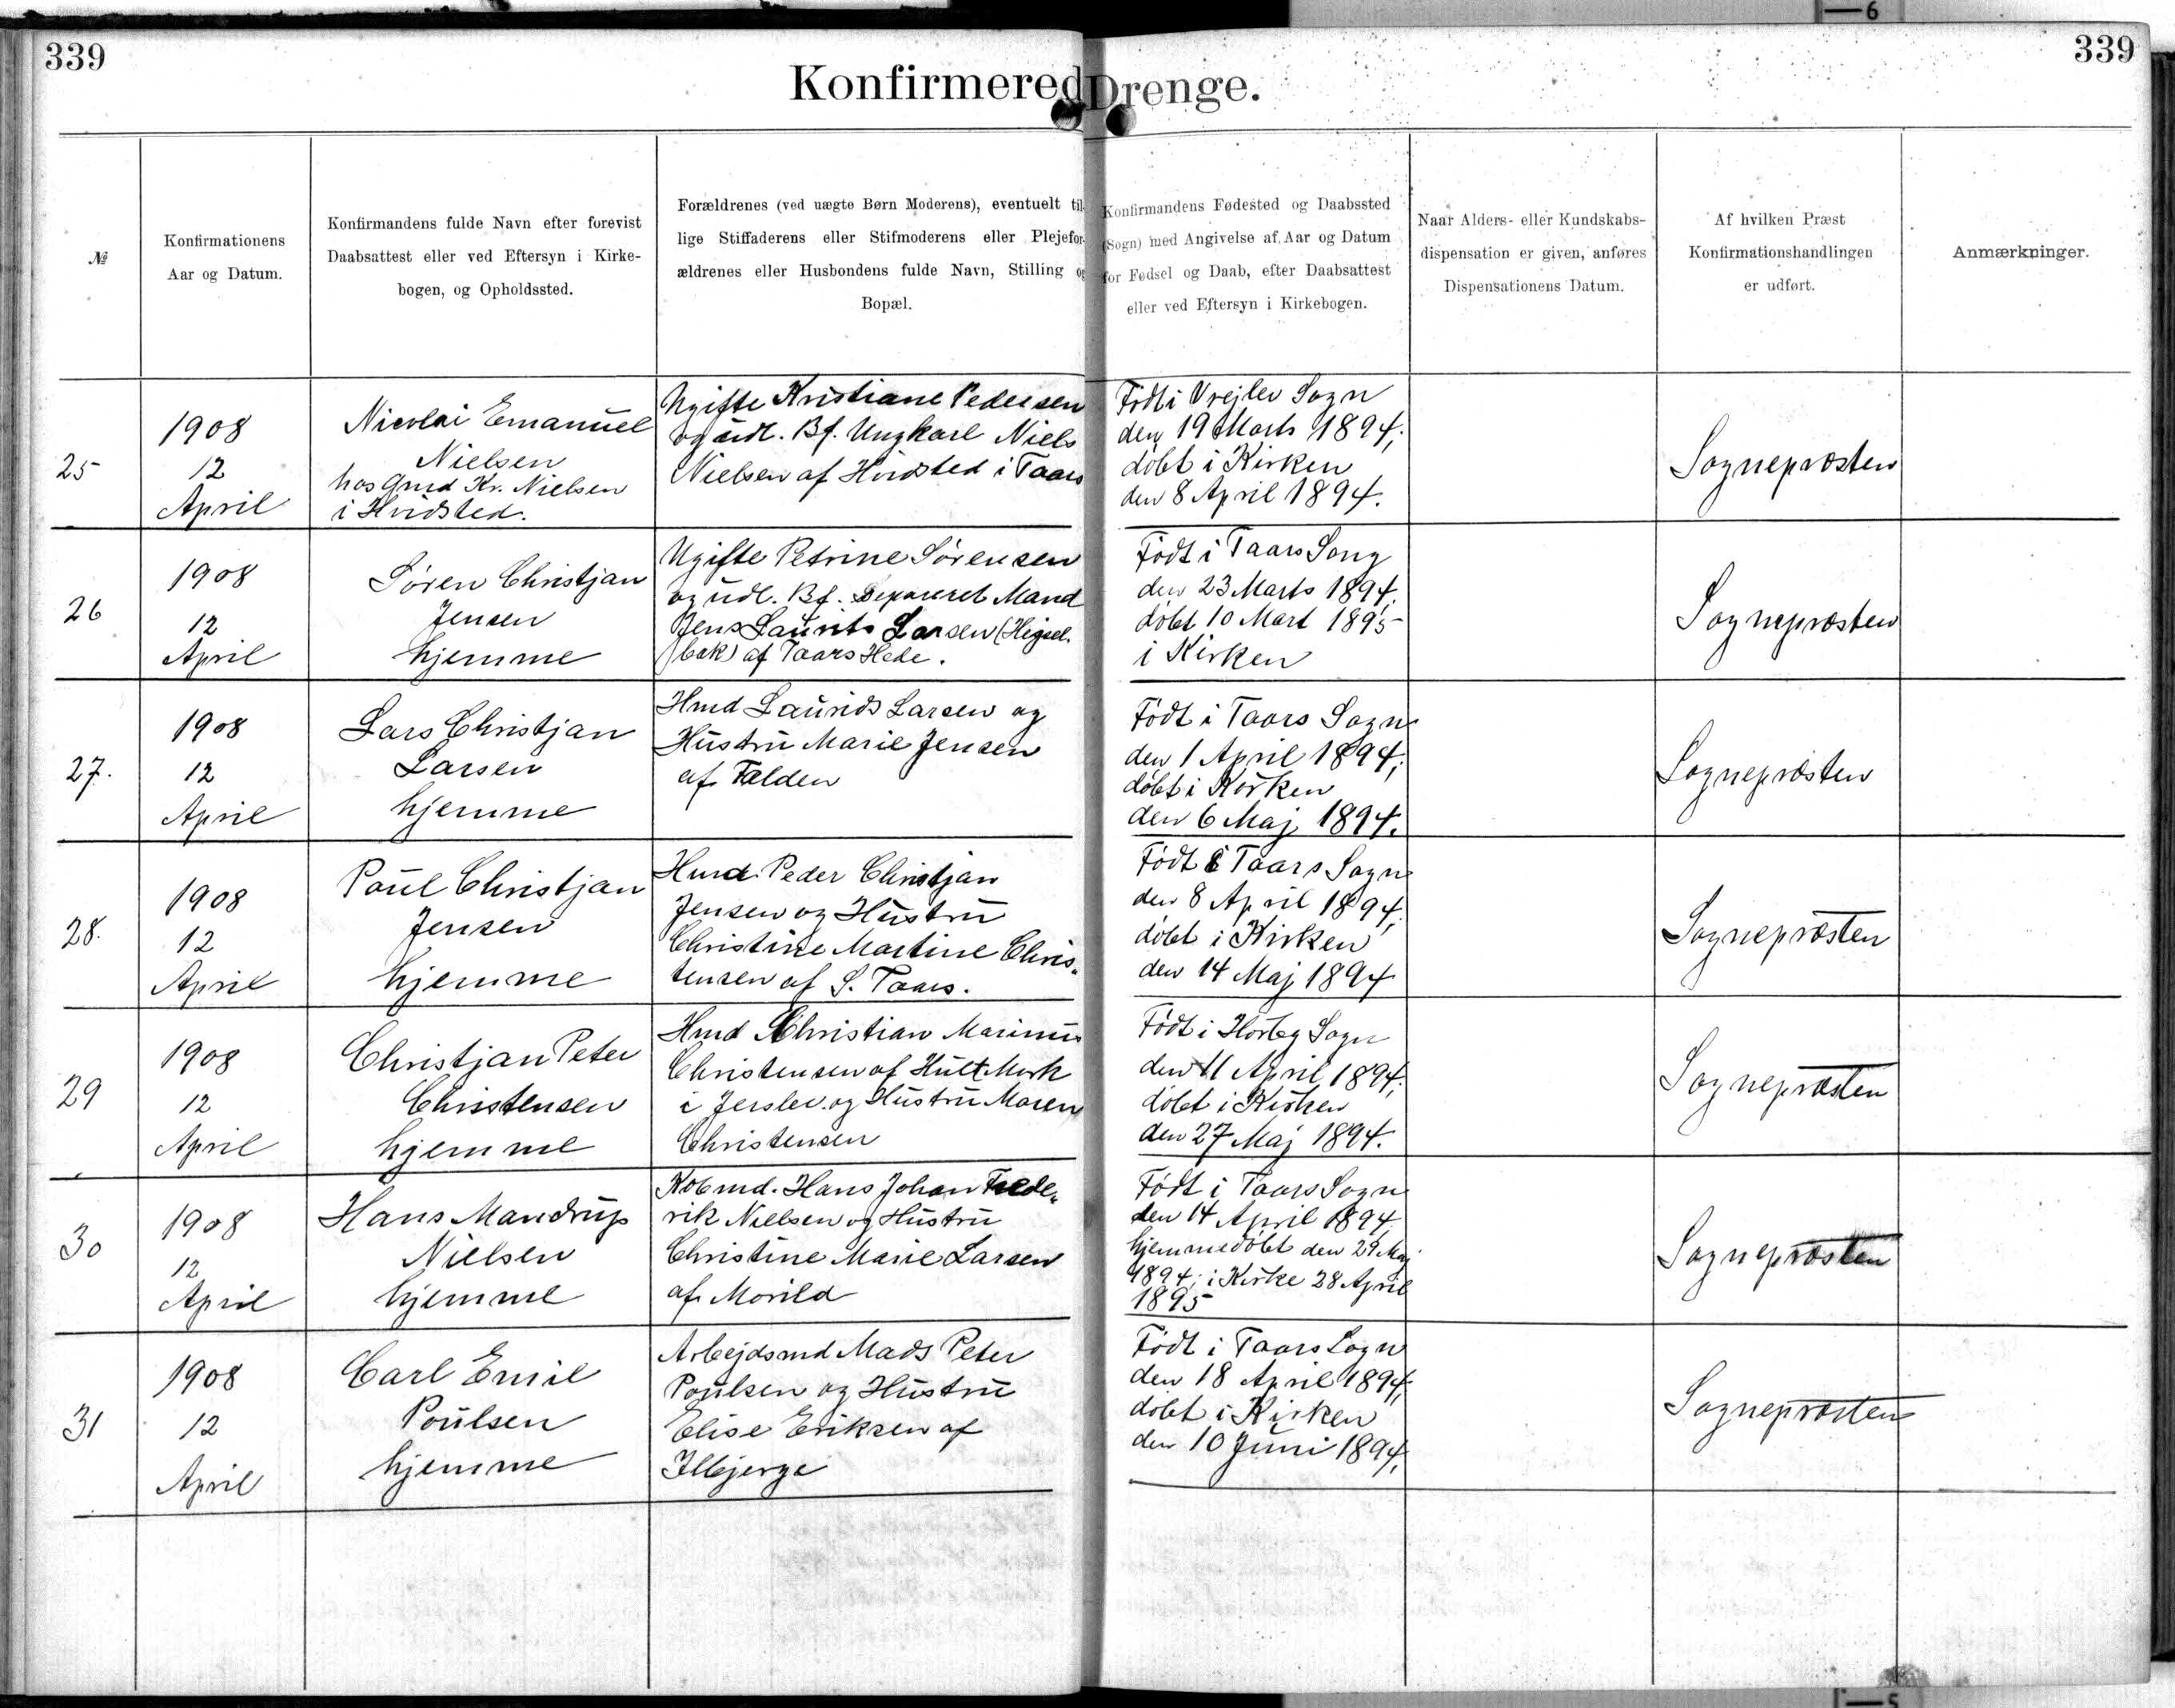 6
339
339
Konfirmered Drenge.
№
Konfirmationens
Aar og Datum.
Konfirmandens fulde Navn efter forevist
Daabsattest eller ved Eftersyn i Kirke-
bogen, og Opholdssted.
Forældrenes (ved uægte Børn Moderens), eventuelt til-
lige Stiffaderens eller Stifmoderens eller Plejefor-
ældrenes eller Husbondens fulde Navn, Stilling og
Bopæl.
Konfirmandens Fødested og Daabssted
(Sogn) med Angivelse af Aar og Datum
for Fødsel og Daab, efter Daabsattest
eller ved Eftersyn i Kirkebogen.
Naar Alders- eller Kundskabs-
dispensation er given, anføres
Dispensationens Datum.
Af hvilken Præst
Konfirmationshandlingen
er udført.
Anmærkninger.
25
1908
12
April
Nicolai Emanuel
Nielsen
hos Gmd Kr. Nielsen
i Hvidsted.
Ugifte Kristiane Pedersen
og udl. Bf. Ungkarl Niels
Nielsen af Hvidsted i Taars
Født i Vrejlev Sogn
den 19 Marts 1894;
døbt i Kirken
den 8 April 1894.
Sognepræsten
26
1908
12
April
Søren Christjan
Jensen
hjemme
Ugifte Petrine Sørensen
og udl. Bf. Separeret Mand
Jens Laurits Larsen (Hejsel.
bæk) af Taars Hede.
Født i Taars Song
den 23 Marts 1894,
døbt 10 Mart 1895
i Kirken
Sognepræsten
27.
1908
12
April
Lars Christjan
Larsen
hjemme
Hmd Laurids Larsen og
Hustru Marie Jensen
af Falden
Født i Taars Sogn
den 1 April 1894;
døbt i Kirken
den 6 Maj 1894.
Sognepræsten
28.
1908
12
April
Poul Christjan
Jensen
hjemme
Hmd. Peder Christjan
Jensen og Hustru
Christine Martine Chris-
tensen af S. Taars.
Født i Taars Sogn
den 8 April 1894,
døbt i Kirken
den 14 Maj 1894
Sognepræsten
29
1908
12
April
Christjan Peter
Christensen
hjemme
Hmd Christian Marinus
Christensen af Hult Mark
i Jerslev og Hustru Maren
Christensen
Født i Hørby Sogn
den 11 April 1894,
døbt i Kirken
den 27 Maj 1894.
Sognepræsten
30
1908
12
April
Hans Mandrup
Nielsen
hjemme
Købmd. Hans Johan Frede-
rik Nielsen og Hustru
Christine Marie Larsen
af Morild
Født i Taars Sogn
den 14 April 1894
hjemmedøbt den 29 Maj
1894; i Kirke 28 April
1895
Sognepræsten
31
1908
12
April
Carl Emil
Poulsen
hjemme
Arbejdsmd Mads Peter
Poulsen og Hustru
Elise Eriksen af
Ilbjerge
Født i Taars Sogn
den 18 April 1894,
døbt i Kirken
den 10 Juni 1894,
Sognepræsten
5